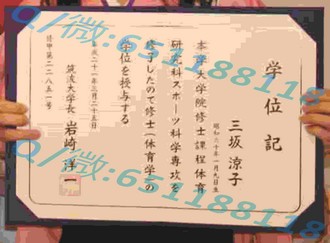 学位記
三坂涼子
昭和六十年一月九日生
本学大学院修士課程体育
研究科スポーツ科学専攻を
修了したので修士(体育学)の
学位を授与する
平成二十一年三月二十五日
筑波大学長 岩崎洋一
修甲第二二八五一号
Q/微:651188118
Q/微:651188118